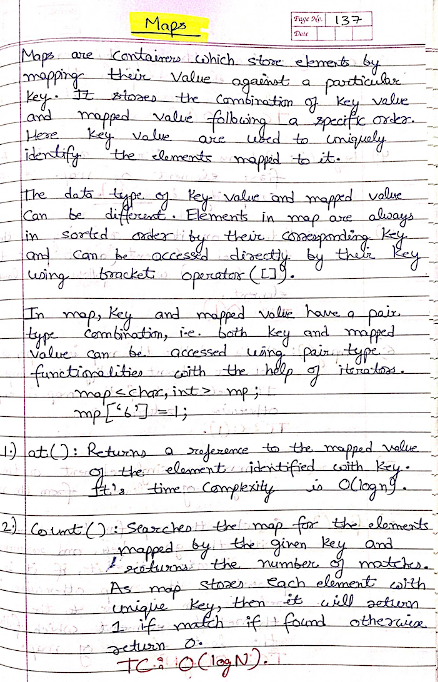 Maps
Page No. 137
Date
Maps are Containers which store elements by
mapping their value against a particular
Key. It stores the combination of key value
and mapped value following a specific order.
Here key value are used to uniquely
identify the elements mapped to it.
The data type of key value and mapped value
Can be different. Elements in map are always
in sorted order by their corresponding key
and can be accessed directly by their key
using bracket operator ([]).
In map, key and mapped value have a pair
type combination, i.e. both key and mapped
value can be accessed using pair type
functionalities with the help of iterators.
map<char, int> mp;
mp['b'] = 1;
1.) at(): Returns a reference to the mapped value
of the element identified with key.
It's time complexity is O(logn).
2.) Count(): Searches the map for the elements
mapped by the given key and
returns the number of matches.
As map stores each element with
unique key, then it will return
1 if match if found otherwise
return 0.
TC: O(logN).